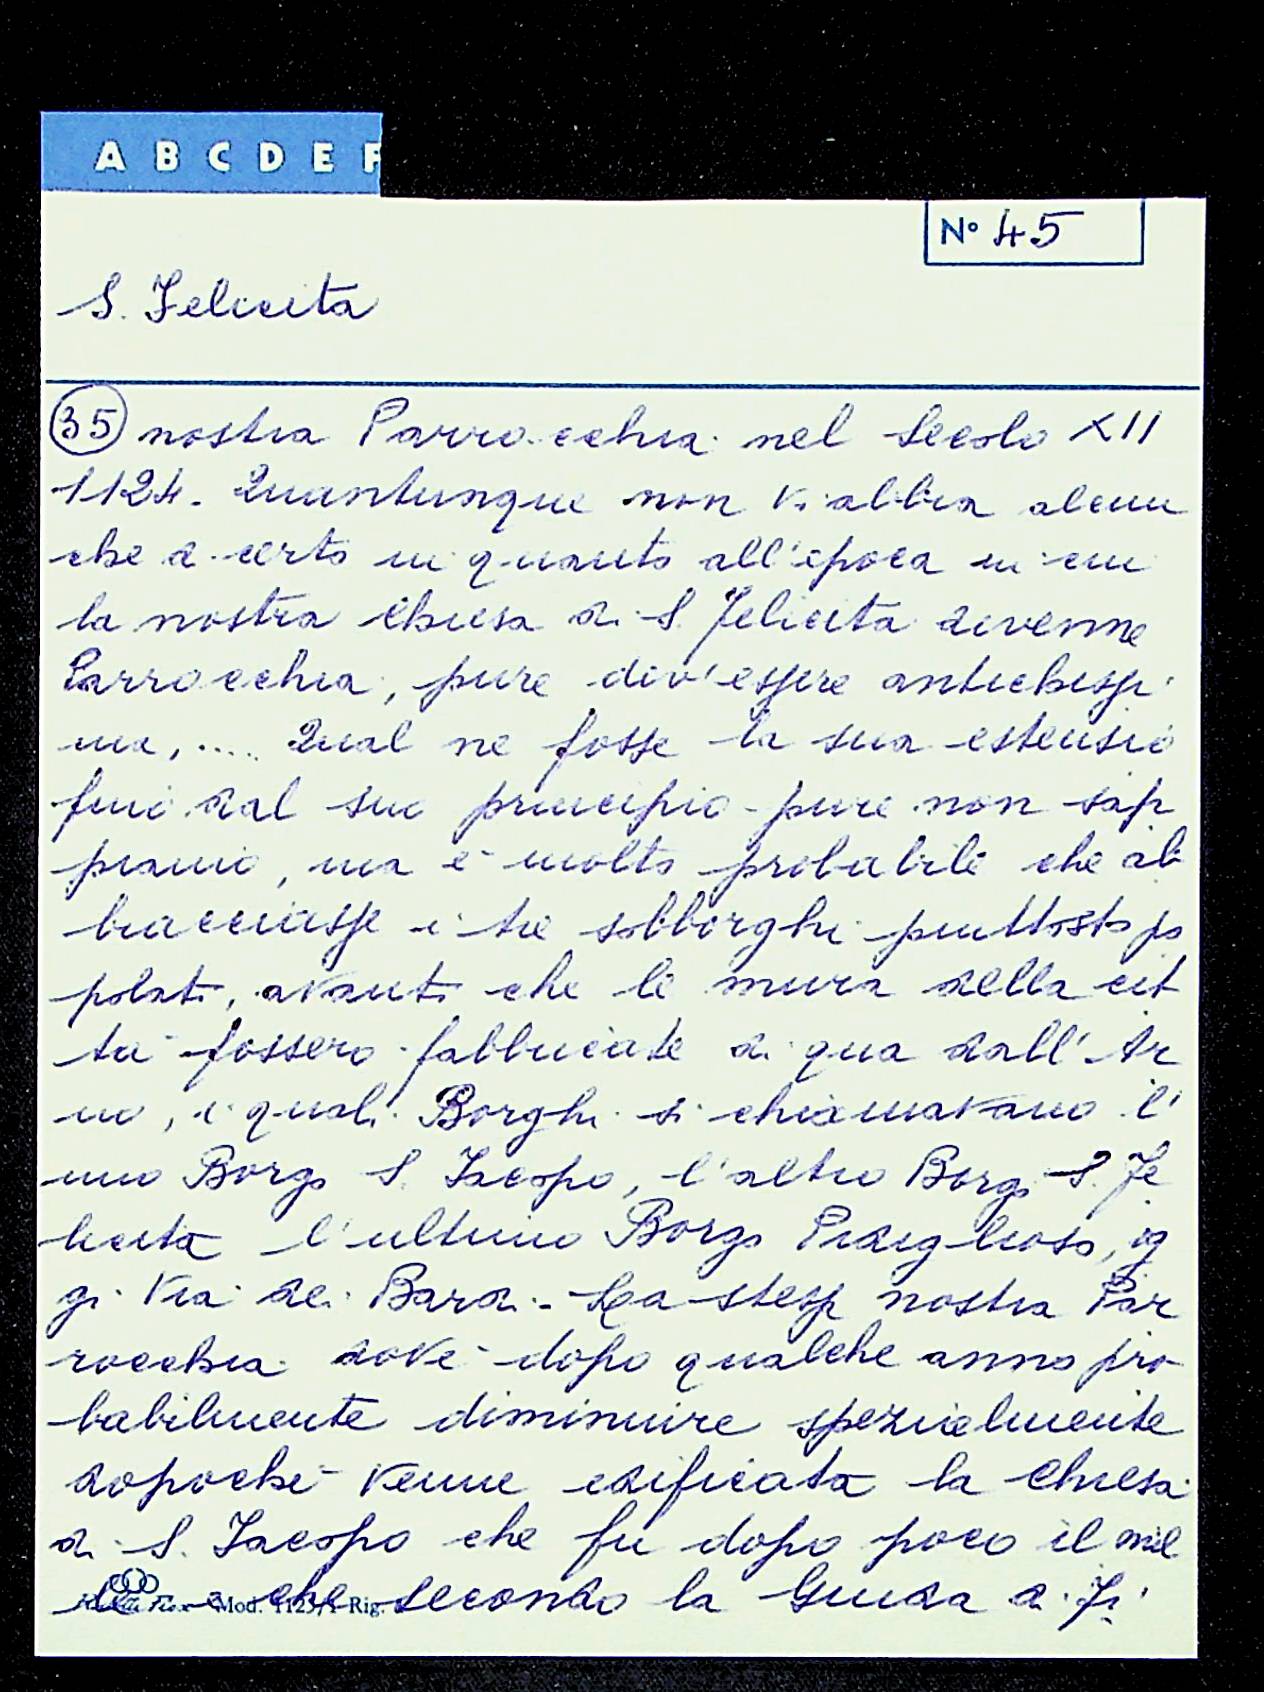 A B C D E F
N° 45
S. Felicita
35 nostra Parrocchia nel Secolo XII
1124. Quantunque non vi abbia alcun
che di certo in quanto all'epoca in cui
la nostra Chiesa di S. Felicita divenne
Parrocchia, pure dev'essere antichissi
ma, .... Qual ne fosse la sua estensio
fino dal suo principio pure non sap
piamo, ma è molto probabile che ab
bracciasse i tre sobborghi piuttosto po
polati, avanti che le mura della cit
tà fossero fabbricate di qua dall'Ar
no, i quali Borghi si chiamavano l'
uno Borgo S. Jacopo, l'altro Borgo S. Fe
licita l'ultimo Borgo Pidiglioso, og
gi Via de' Bardi. La stessa nostra Par
rocchia dové dopo qualche anno pro
babilmente diminuire spezialmente
dopoché venne edificata la Chiesa
di S. Jacopo che fu dopo poco il mil
le e che secondo la Guida di Fi
Mod. 1123/1 Rig.